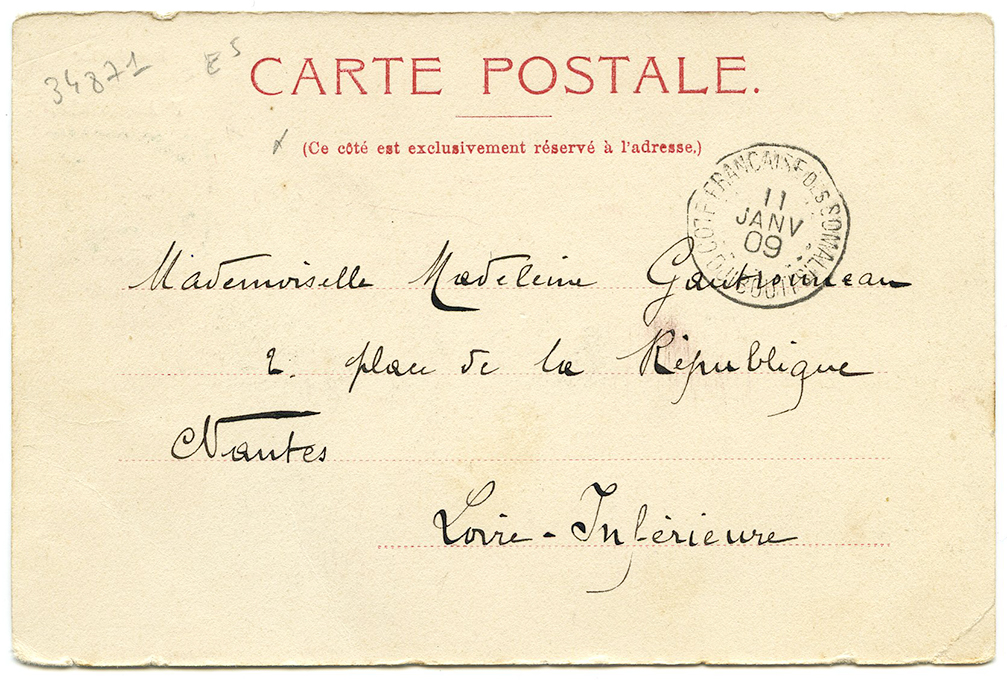 34871 E5
CARTE POSTALE.
(Ce côté est exclusivement réservé à l'adresse.)
COTE FRANÇAISE DES SOMALIS
11
JANV
09
DJIBOUTI
Mademoiselle Madeleine
2. place de la République
Nantes
Loire-Inférieure